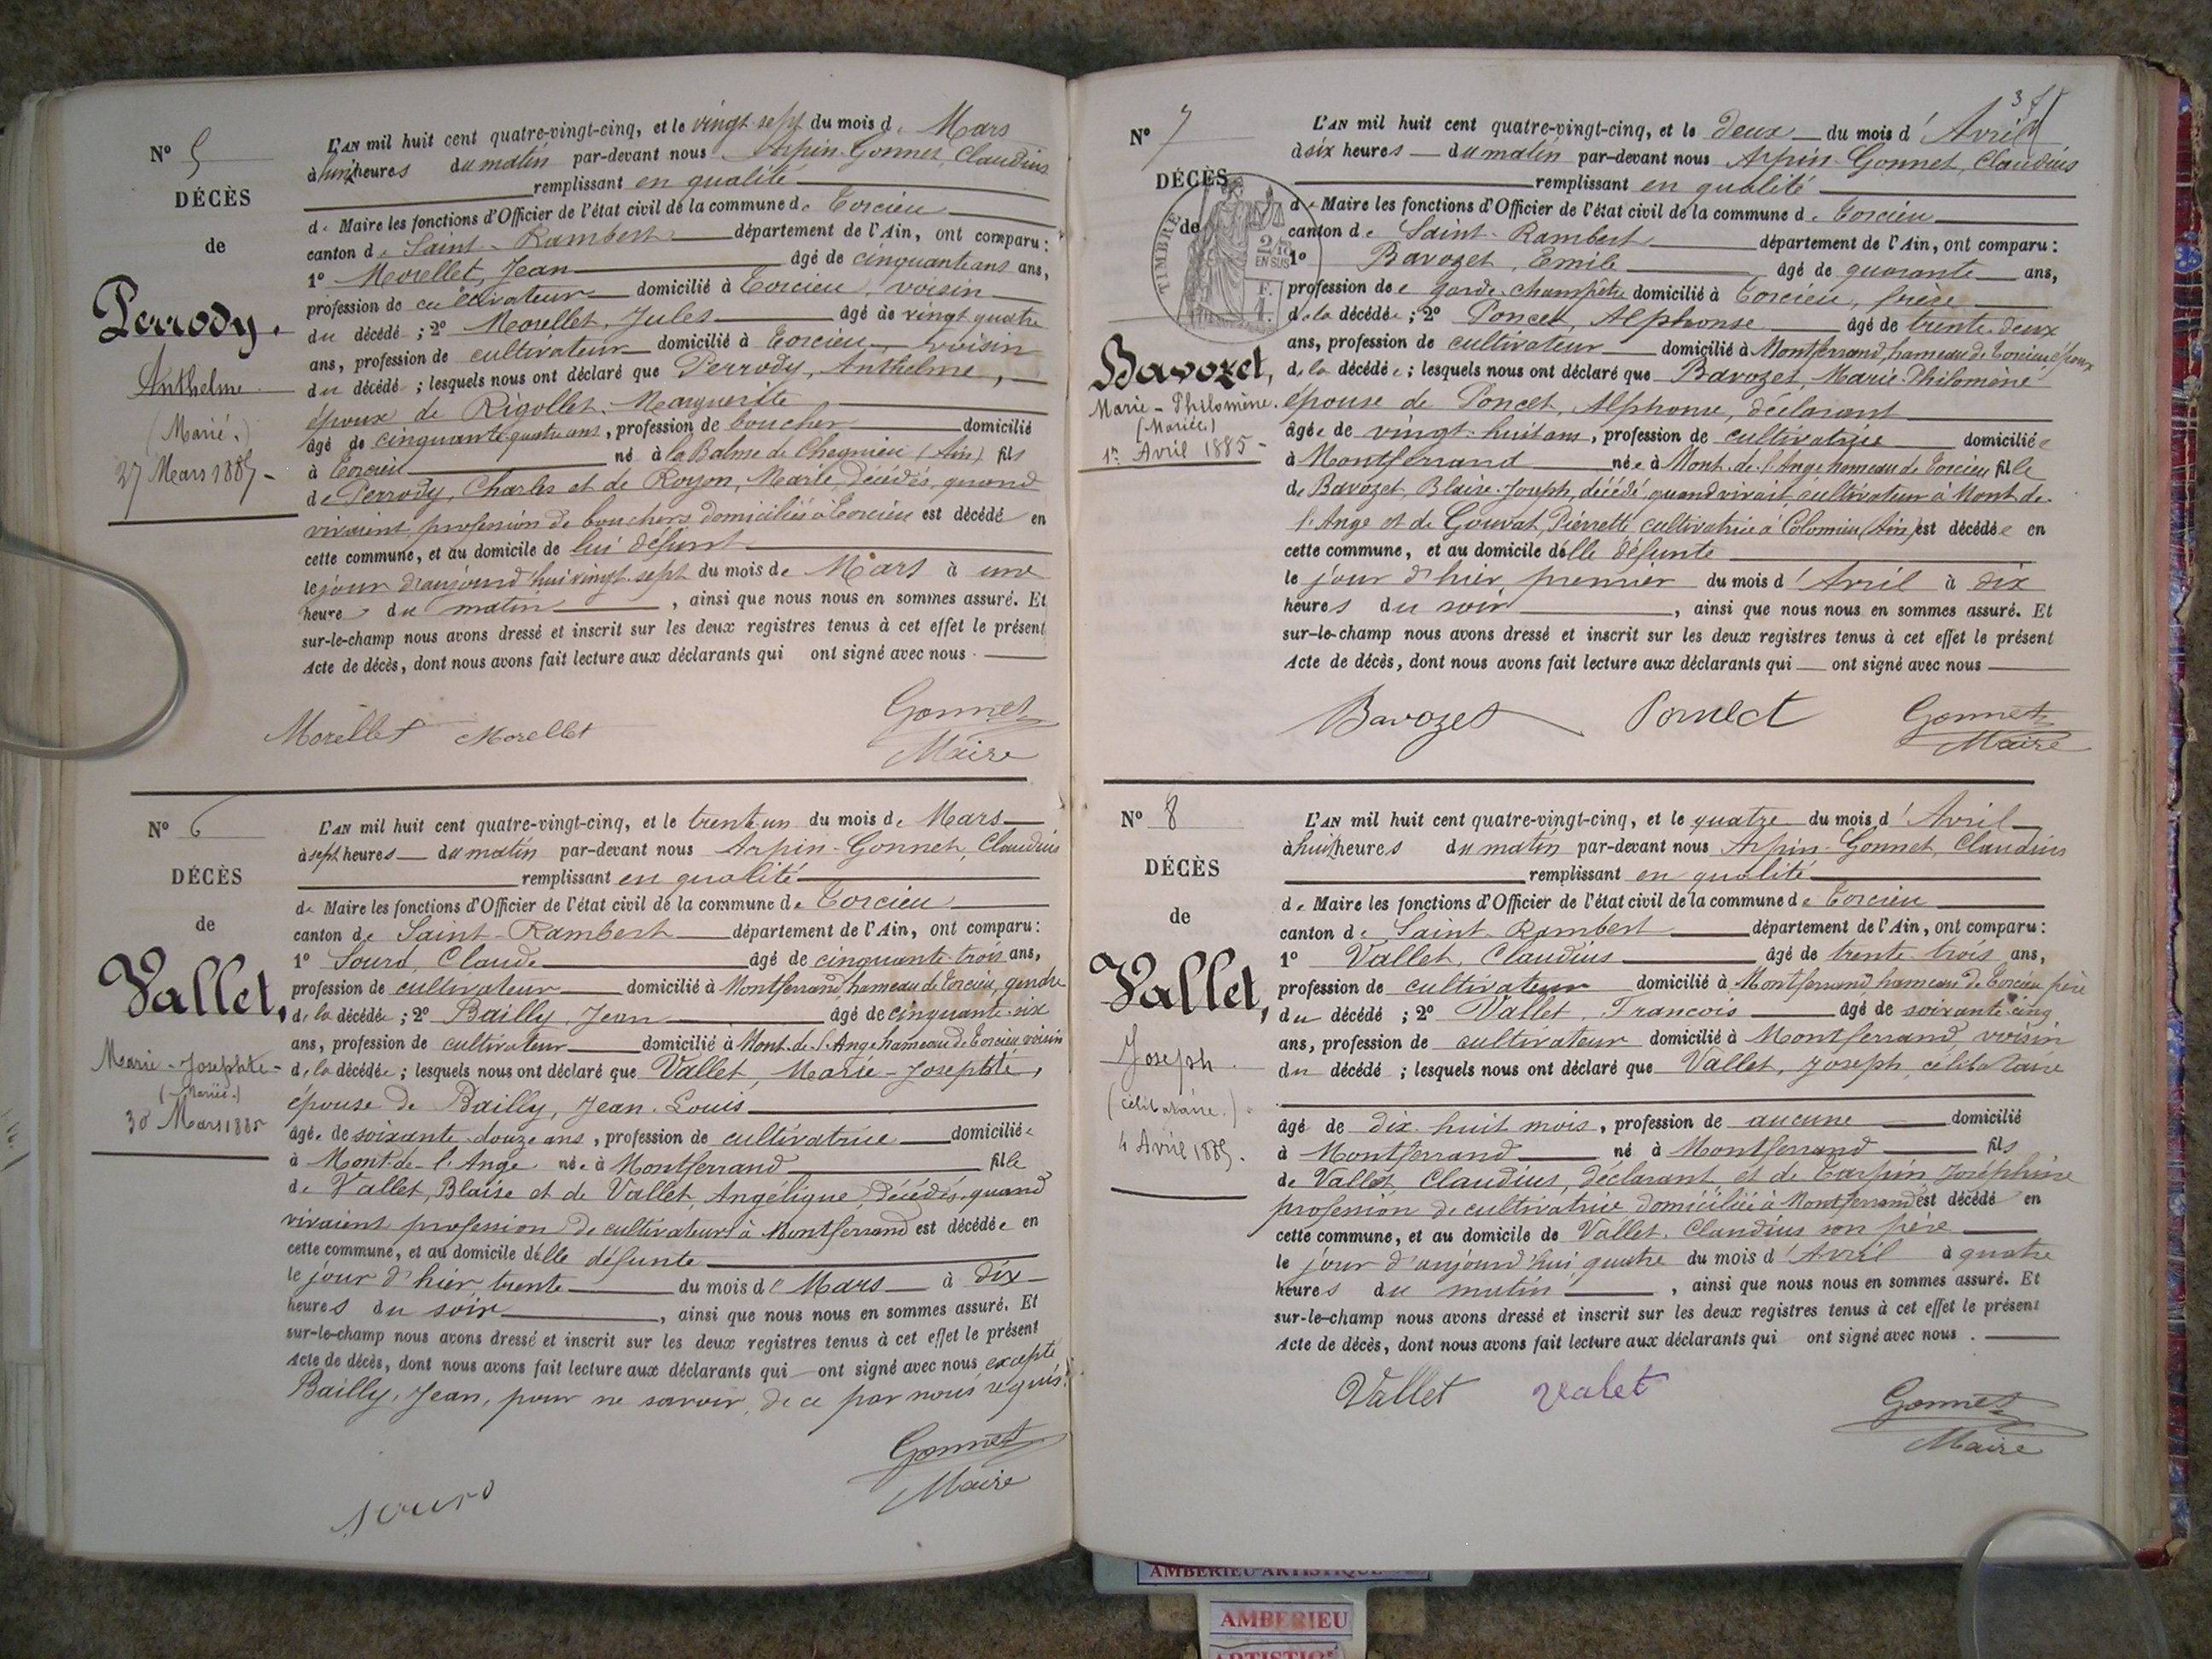 N° 5
DÉCÈS
de
Perrody,
Anthelme
(Marié.)
27 Mars 1885
L'AN mil huit cent quatre-vingt-cinq, et le vingt-sept du mois de Mars
à huit heures du matin par-devant nous Arpin-Gonnet, Claudius
remplissant en qualité
de Maire les fonctions d'Officier de l'état civil de la commune de Torcieu
canton de Saint-Rambert département de l'Ain, ont comparu :
1° Morellet, Jean âgé de cinquante ans ans,
profession de cultivateur domicilié à Torcieu, voisin
du décédé ; 2° Morellet, Jules âgé de vingt quatre
ans, profession de cultivateur domicilié à Torcieu, voisin
du décédé ; lesquels nous ont déclaré que Perrody, Anthelme,
époux de Rigollet, Marguerite
âgé de cinquante-quatre ans, profession de boucher domicilié
à Torcieu né à la Balme de Chegnieu (Ain) fils
de Perrody, Charles et de Royon, Marie, décédés, quand
vivaient profession de bouchers domiciliés à Torcieu est décédé en
cette commune, et au domicile de lui défunt
le jour d'aujourd'hui vingt-sept du mois de Mars à une
heure du matin, ainsi que nous nous en sommes assuré. Et
sur-le-champ nous avons dressé et inscrit sur les deux registres tenus à cet effet le présent
Acte de décès, dont nous avons fait lecture aux déclarants qui ont signé avec nous.
Morellet Morellet Gonnet
Maire
N° 6
DÉCÈS
de
Vallet,
Marie-Josephte
(Mariée.)
30 Mars 1885
L'AN mil huit cent quatre-vingt-cinq, et le trente-un du mois de Mars
à sept heures du matin par-devant nous Arpin-Gonnet, Claudius
remplissant en qualité
de Maire les fonctions d'Officier de l'état civil de la commune de Torcieu
canton de Saint-Rambert département de l'Ain, ont comparu :
1° Sourd, Claude âgé de cinquante-trois ans,
profession de cultivateur domicilié à Montferrand hameau de Torcieu, gendre
de la décédée ; 2° Bailly, Jean âgé de cinquante-six
ans, profession de cultivateur domicilié à Mont-de-l'Ange hameau de Torcieu voisin
de la décédée ; lesquels nous ont déclaré que Vallet, Marie-Josephte,
épouse de Bailly, Jean-Louis
âgée de soixante-douze ans, profession de cultivatrice domiciliée
à Mont-de-l'Ange née à Montferrand fille
de Vallet, Blaise et de Vallet, Angélique, décédés, quand
vivaient profession de cultivateurs à Montferrand est décédée en
cette commune, et au domicile d'elle défunte
le jour d'hier, trente du mois de Mars à dix
heures du soir, ainsi que nous nous en sommes assuré. Et
sur-le-champ nous avons dressé et inscrit sur les deux registres tenus à cet effet le présent
Acte de décès, dont nous avons fait lecture aux déclarants qui ont signé avec nous excepté
Bailly, Jean, pour ne savoir, de ce par nous requis.
Gonnet
Maire
sourd
N° 7
DÉCÈS
de
TIMBRE
2/10
EN SUS
Bavozet,
Marie-Philomène.
(Mariée)
1er Avril 1885
L'AN mil huit cent quatre-vingt-cinq, et le deux du mois d'Avril
à six heures du matin par-devant nous Arpin-Gonnet, Claudius
remplissant en qualité
de Maire les fonctions d'Officier de l'état civil de la commune de Torcieu
canton de Saint-Rambert département de l'Ain, ont comparu :
1° Bavozet, Emile âgé de quarante ans,
profession de garde-champêtre domicilié à Torcieu, frère
de la décédée ; 2° Poncet, Alphonse âgé de trente-deux
ans, profession de cultivateur domicilié à Montferrand, hameau de Torcieu époux
de la décédée ; lesquels nous ont déclaré que Bavozet, Marie-Philomène
épouse de Poncet, Alphonse, déclarant
âgée de vingt-huit ans, profession de cultivatrice domiciliée
à Montferrand née à Mont-de-l'Ange hameau de Torcieu fille
de Bavozet, Blaise-Joseph, décédé, quand vivait cultivateur à Mont-de-
l'Ange et de Gouvat, Pierrette cultivatrice à Colomieu (Ain) est décédée en
cette commune, et au domicile d'elle défunte
le jour d'hier premier du mois d'Avril à dix
heures du soir, ainsi que nous nous en sommes assuré. Et
sur-le-champ nous avons dressé et inscrit sur les deux registres tenus à cet effet le présent
Acte de décès, dont nous avons fait lecture aux déclarants qui ont signé avec nous
Bavozet Poncet Gonnet
Maire
N° 8
DÉCÈS
de
Vallet,
Joseph
(célibataire.)
4 Avril 1885.
L'AN mil huit cent quatre-vingt-cinq, et le quatre du mois d'Avril
à huit heures du matin par-devant nous Arpin-Gonnet, Claudius
remplissant en qualité
de Maire les fonctions d'Officier de l'état civil de la commune de Torcieu
canton de Saint-Rambert département de l'Ain, ont comparu :
1° Vallet, Claudius âgé de trente-trois ans,
profession de cultivateur domicilié à Montferrand hameau de Torcieu père
du décédé ; 2° Vallet, Francois âgé de soixante cinq
ans, profession de cultivateur domicilié à Montferrand, voisin
du décédé ; lesquels nous ont déclaré que Vallet, Joseph, célibataire
âgé de dix-huit mois, profession de aucune domicilié
à Montferrand né à Montferrand fils
de Vallet Claudius, déclarant et de Carpin Joséphine
profession de cultivatrice domiciliée à Montferrand est décédé en
cette commune, et au domicile de Vallet, Claudius son père
le jour d'aujourd'hui quatre du mois d'Avril à quatre
heures du matin, ainsi que nous nous en sommes assuré. Et
sur-le-champ nous avons dressé et inscrit sur les deux registres tenus à cet effet le présent
Acte de décès, dont nous avons fait lecture aux déclarants qui ont signé avec nous.
Vallet valet Gonnet
Maire
AMBERIEU ARTISTIQUE
AMBERIEU